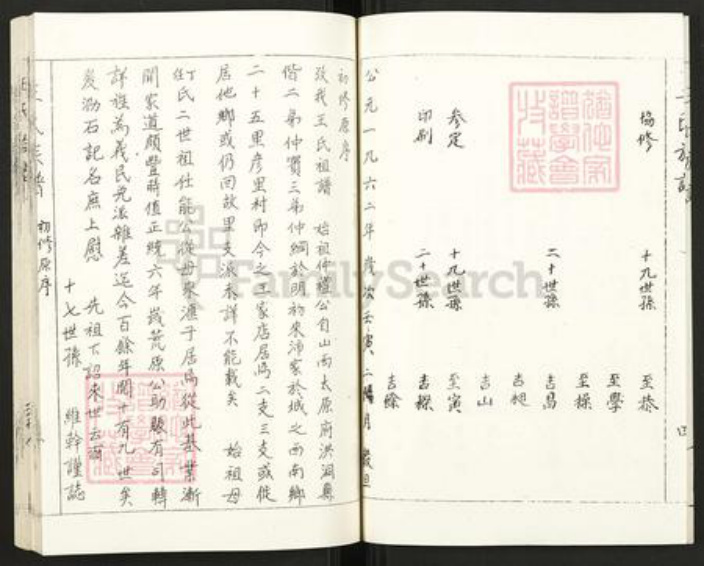 協修
十九世孫
至恭
至學
至操
二十世孫
吉昌
吉昶
吉山
參定
十九世孫
至寅
印刷
二十世孫
吉操
吉餘
公元一九六二年歲次壬寅二陽月 穀旦
初修原序
攷我王氏祖譜 始祖仲禮公自山西太原府洪洞縣
偕二弟仲賢三弟仲綱於明初來沛家於城之西南鄉
二十五里彥里村即今之王家店居焉二支三支或徙
居他鄉或仍回故里支派未詳不能載矣 始祖母
丁氏二世祖仕能公從母來滙子居焉從此基業漸
開家道頗豐時值正統六年歲荒原公助賑有司轉
詳旌為義民免派雜差迄今百餘年間十有九世矣
爰泐石記名庶上慰 先祖下詔來世云爾
十七世孫 維幹謹誌
初修原序
FamilySearch